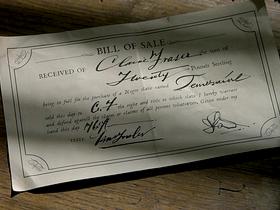 BILL OF SALE
RECEIVED OF Claire Fraser the sum of
Twenty Pounds Sterling
being in full for the purchase of a Negro slave named Temeraire
sold this day to C. F. the right and title to which slave I hereby warrant
and defend against the claims of all persons whatsoever. Given under my
hand this day